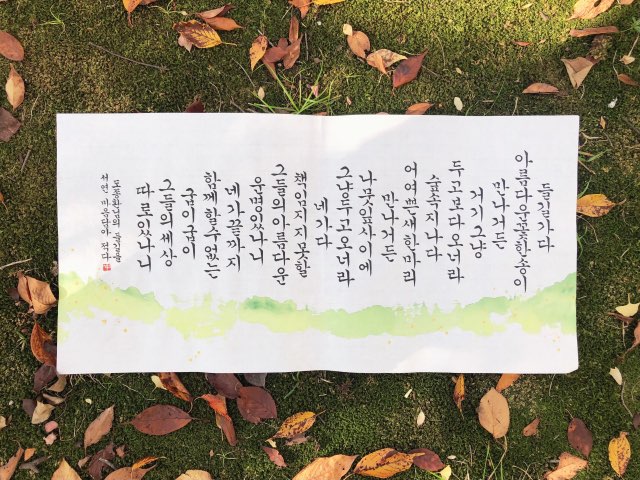 들길가다
아름다운꽃한송이
만나거든
거기그냥
두고보다오너라
숲속지나다
어여쁜새한마리
만나거든
나뭇잎사이에
그냥두고오너라
네가다
책임지지못할
그들의아름다운
운명있나니
네가끝까지
함께할수없는
굽이굽이
그들의세상
따로있나니
도종환님의
서연 마음담아 적다